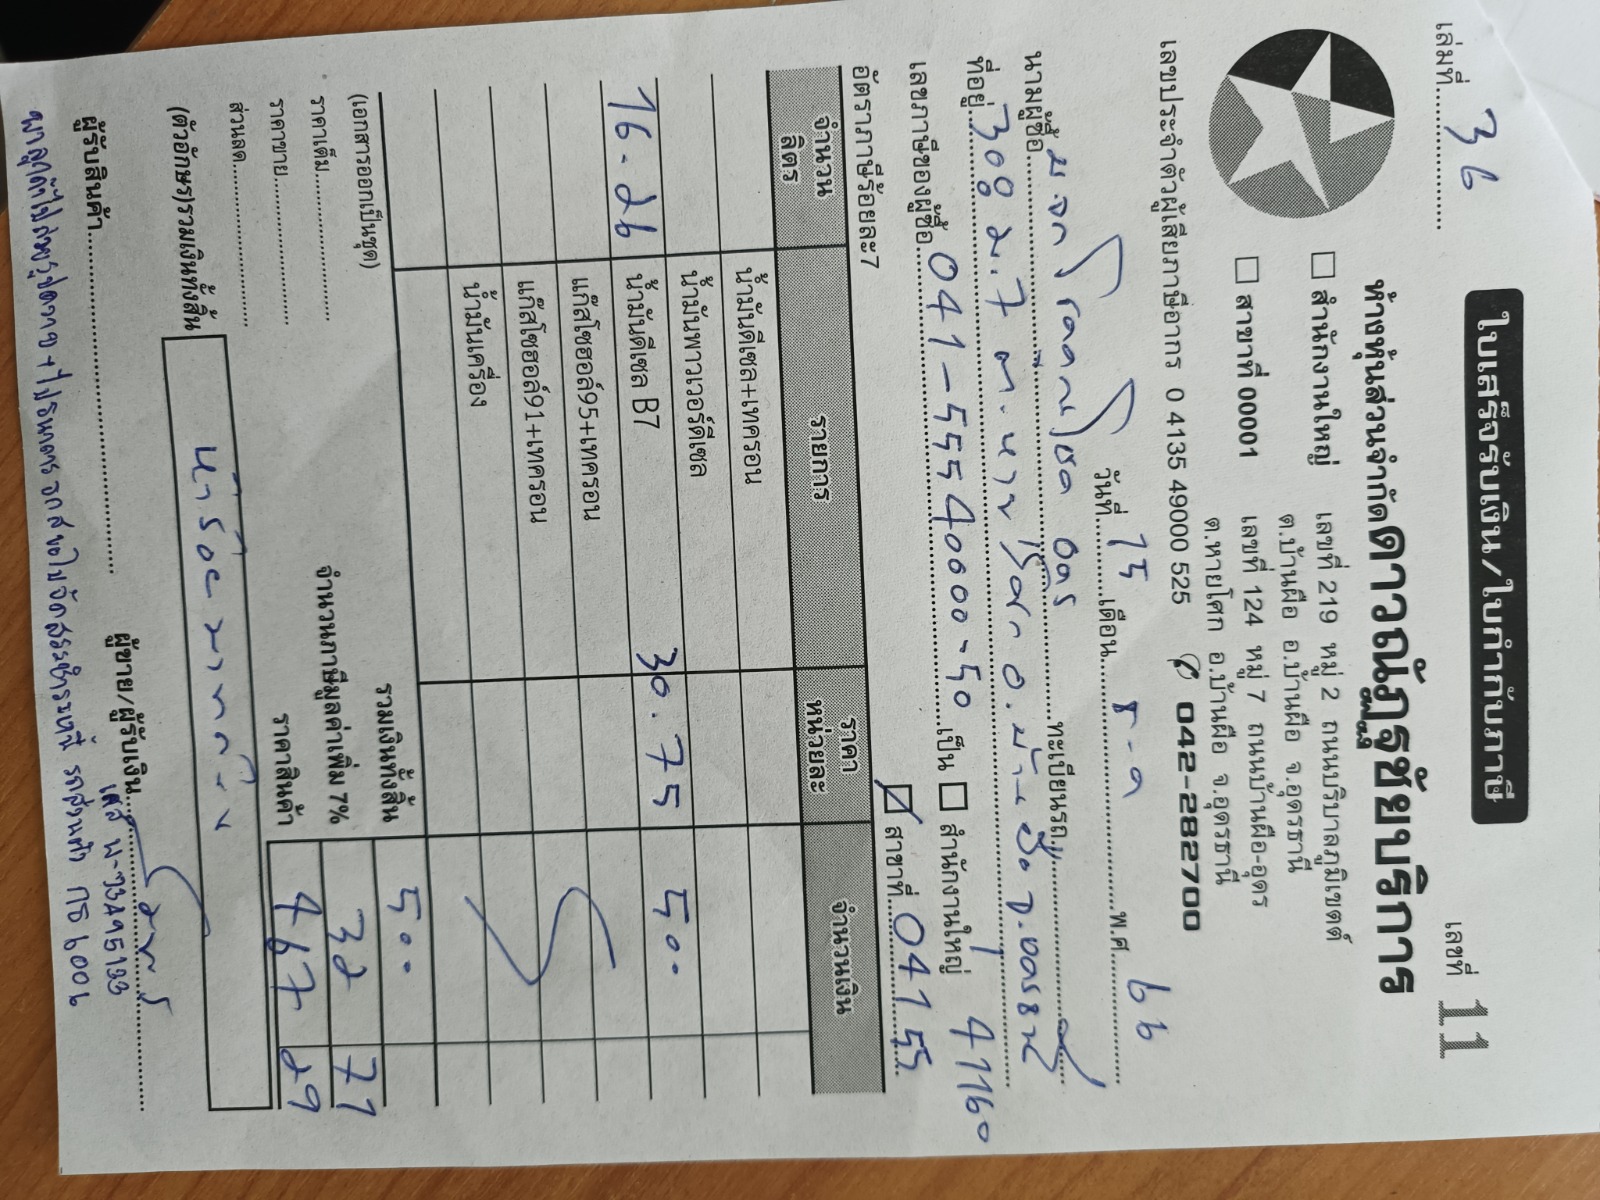 เล่มที่ 36
ใบเสร็จรับเงิน / ใบกำกับภาษี
เลขที่ 11
ห้างหุ้นส่วนจำกัดดาวณัฏฐชัยบริการ
สำนักงานใหญ่ เลขที่ 219 หมู่ 2 ถนนบริบาลภูมิเขตต์
ต.บ้านผือ อ.บ้านผือ จ.อุดรธานี
สาขาที่ 00001 เลขที่ 124 หมู่ 7 ถนนบ้านผือ-อุดร
ต.หายโศก อ.บ้านผือ จ.อุดรธานี
เลขประจำตัวผู้เสียภาษีอากร 0 4135 49000 525 042-282700
วันที่ 15 เดือน ธ.ค พ.ศ. 66
นามผู้ซื้อ บ.จก ทะเบียนรถ
ที่อยู่ 308 ม.7 ต. อ. จ.อุดรธานี 41160
เลขภาษีของผู้ซื้อ 041-5554000-50 เป็น สำนักงานใหญ่
อัตราภาษีร้อยละ7 สาขาที่ 04155
จำนวนลิตร รายการ ราคาหน่วยละ จำนวนเงิน
น้ำมันดีเซล+เทครอน
น้ำมันพาวเวอร์ดีเซล
16.26 น้ำมันดีเซล B7 30.75 500
แก๊สโซฮอล์95+เทครอน
แก๊สโซฮอล์91+เทครอน
น้ำมันเครื่อง
(เอกสารออกเป็นชุด) รวมเงินทั้งสิ้น 500
ราคาเต็ม จำนวนภาษีมูลค่าเพิ่ม 7% 32 71
ราคาขาย ราคาสินค้า 467 29
ส่วนลด
(ตัวอักษร)รวมเงินทั้งสิ้น ห้าร้อยบาทถ้วน
ผู้รับสินค้า ผู้ขาย/ผู้รับเงิน